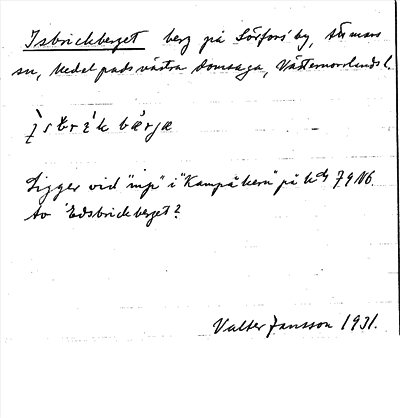 Isbrickberget berg på Lörfors' by, Attmars
sn, Medelpads västra domsaga, Västernorrlands l.
ı̀sbrı̀k bær̀jæ
Ligger vid "mp" i "Kampåkern" på kbl 74 N6.
Av Edsbrickberget?
Valter Jansson 1931.